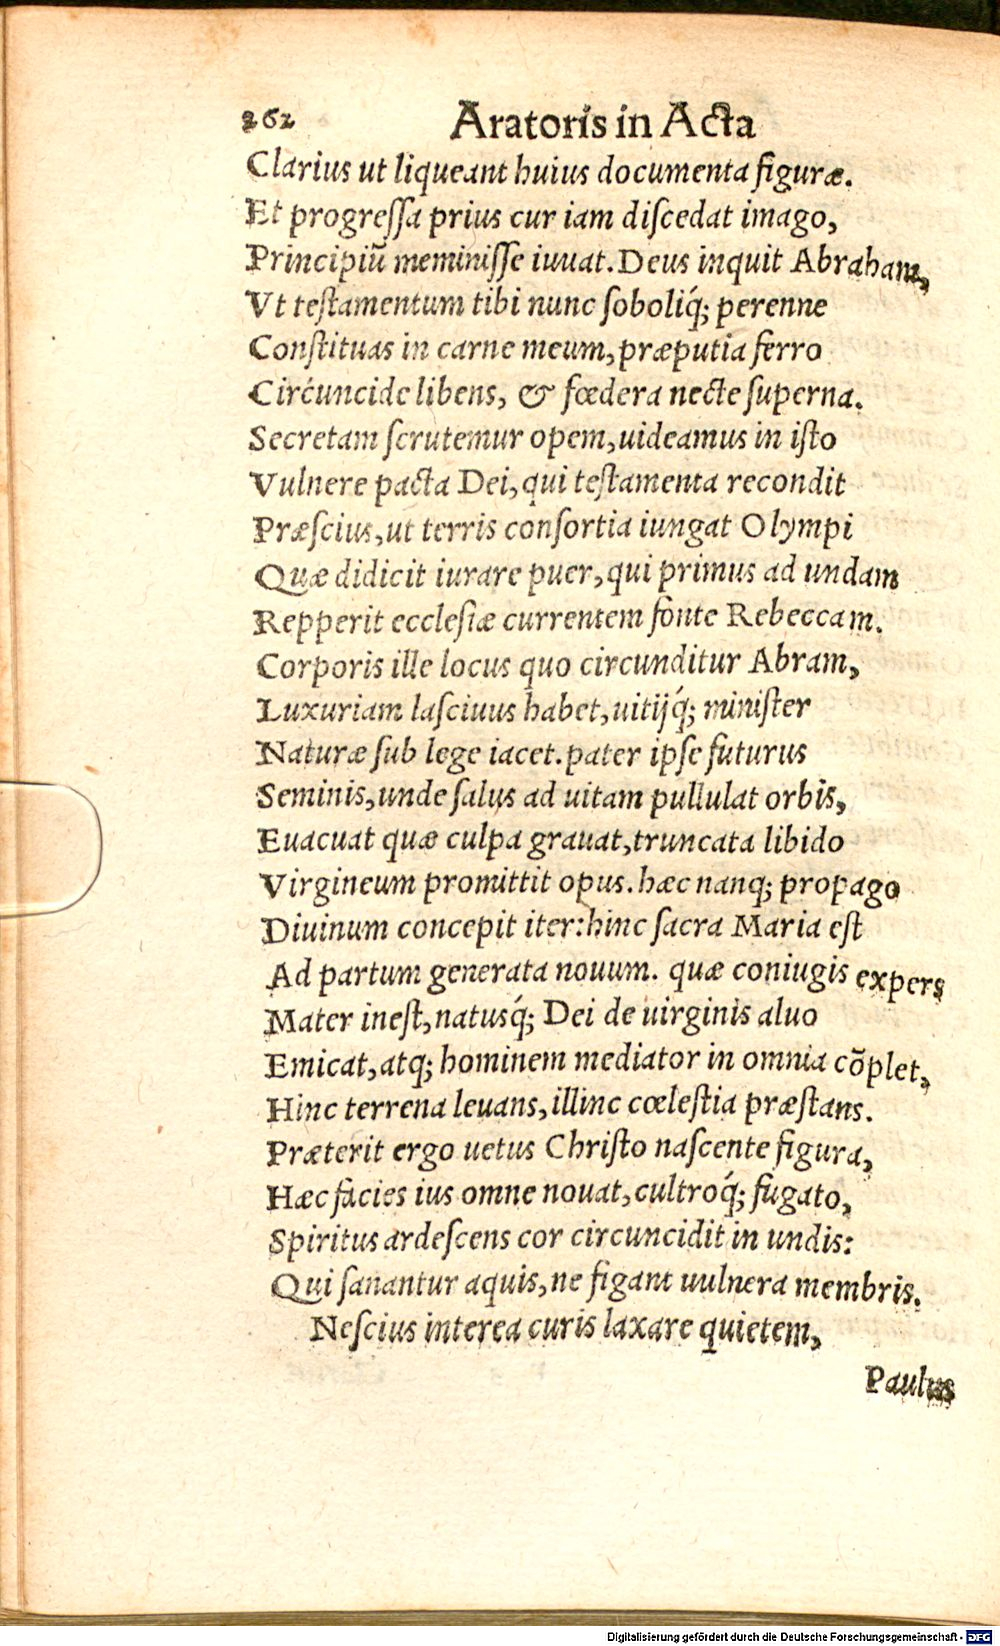 262 Aratoris in Acta
Clarius ut liqueant huius documenta figuræ.
Et progreſſa prius cur iam diſcedat imago,
Principiū meminiſſe iuuat. Deus inquit Abraham,
Vt teſtamentum tibi nunc ſoboliq́; perenne
Conſtituas in carne meum, præputia ferro
Circuncide libens, & fœdera necte ſuperna.
Secretam ſcrutemur opem, uideamus in iſto
Vulnere pacta Dei, qui teſtamenta recondit
Præſcius, ut terris conſortia iungat Olympi
Quæ didicit iurare puer, qui primus ad undam
Repperit eccleſiæ currentem fonte Rebeccam.
Corporis ille locus quo circunditur Abram,
Luxuriam laſciuus habet, uitijq́; miniſter
Naturæ ſub lege iacet. pater ipſe futurus
Seminis, unde ſalus ad uitam pullulat orbis,
Euacuat quæ culpa grauat, truncata libido
Virgineum promittit opus. hæc nanq; propago
Diuinum concepit iter: hinc ſacra Maria eſt
Ad partum generata nouum. quæ coniugis expers
Mater ineſt, natusq́; Dei de uirginis aluo
Emicat, atq; hominem mediator in omnia cōplet,
Hinc terrena leuans, illinc cœleſtia præſtans.
Præterit ergo uetus Chriſto naſcente figura,
Hæc facies ius omne nouat, cultroq́; fugato,
Spiritus ardeſcens cor circuncidit in undis:
Qui ſanantur aquis, ne figant uulnera membris.
Neſcius interea curis laxare quietem,
Paulus
Digitalisierung gefördert durch die Deutsche Forschungsgemeinschaft - DFG